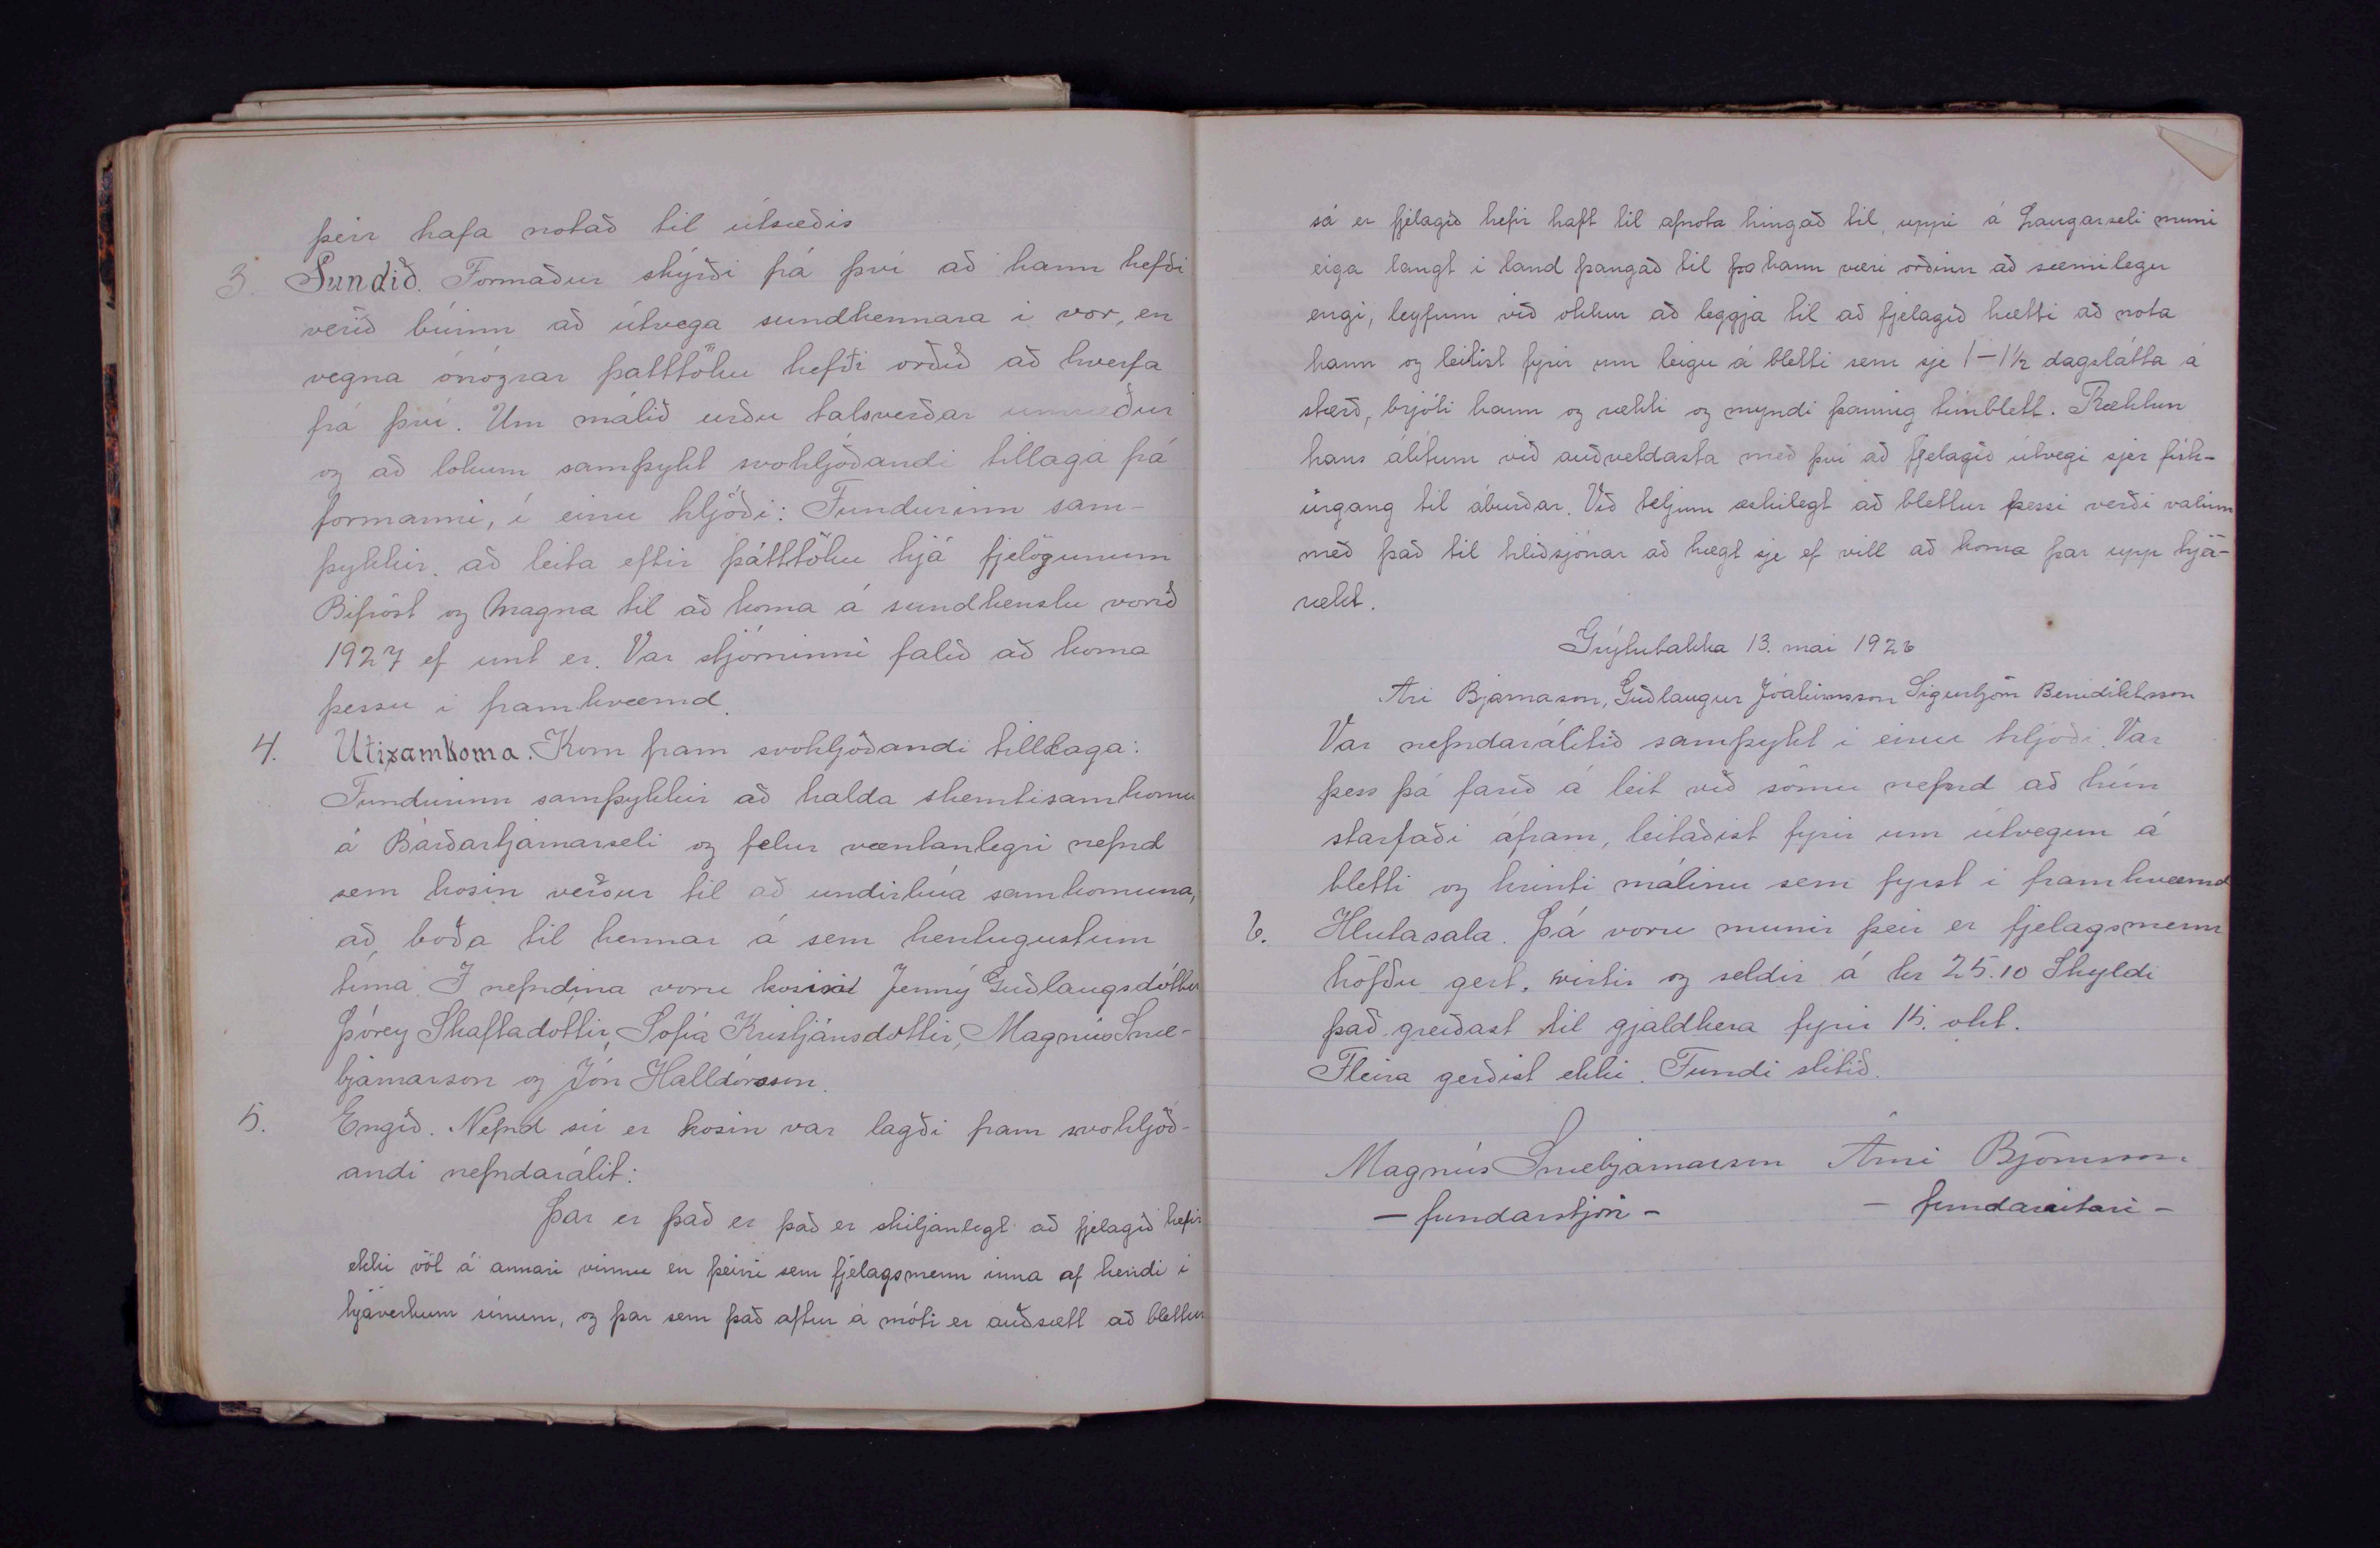 þeir hafa notað til útsæðis
3. Sundið. Formaður skýrði frá því að hann hefði
verið búinn að útvega sundkennara í vor, en
vegna ónógrar þátttöku hefði orðið að hverfa
frá því. Um málið urðu talsverðar umræður
og að lokum samþykt svohljóðandi tillaga frá
formanni, í einu hljóði: Fundurinn sam-
þykkir að leita eftir þátttöku hjá fjelögunum
Bifröst og Magna til að koma á sundkenslu vorið
1927 ef unt er. Var stjórninni falið að koma
þessu í framkvæmd.
4. Útisamkoma. Kom fram svohljóðandi tillaga:
Fundurinn samþykkir að halda skemtisamkomu
á Bárðartjarnarseli og felur væntanlegri nefnd
sem kosin verður til að undirbúa samkomuna,
að boða til hennar á sem hentugustum
tíma. Í nefndina voru kosin Jenný Guðlaugsdóttir
Þórey Skaftadóttir, Sofía Kristjánsdóttir, Magnús Snæ-
bjarnarson og Jón Halldórsson.
5. Engið. Nefnd sú er kosin var lagði fram svohljóð-
andi nefndarálit:
Þar er það er það er skiljanlegt að fjelagið hefir
ekki völ á annari vinnu en þeirri sem fjelagsmenn inna af hendi í
hjáverkum sínum, og þar sem það aftur á móti er auðsætt að blettur
sá er fjelagið hefir haft til afnota hingað til, uppi á Laugarseli muni
eiga langt í land þangað til hann væri orðinn að sæmilegu
engi, leyfum við okkur að leggja til að fjelagið hætti að nota
hann og leitist fyrir um leigu á bletti sem sje 1-1½ dagslátta á
stærð, brjóti hann og rækti og myndi þannig túnblett. Ræktun
hans álítum við auðveldasta með því að fjelagið útvegi sjer fisk-
úrgang til áburðar. Við teljum æskilegt að blettur þessi verði valinn
með það til hliðsjónar að hægt sje ef vill að koma þar upp trjá-
rækt.
Grýtubakka 13. maí 1926
Ari Bjarnason, Guðlaugur Jóakimsson Sigurbjörn Benidiktsson
Var nefndarálitið samþykt í einu hljóði. Var
þess þá farið á leit við sömu nefnd að hún
starfaði áfram, leitaðist fyrir um útvegun á
bletti og hrinti málinu sem fyrst í framkvæmd
6. Hlutasala. Þá voru munir þeir er fjelagsmenn
höfðu gert, virtir og seldir á kr 25.10 Skyldi
það greiðast til gjaldkera fyrir 15. okt.
Fleira gerðist ekki. Fundi slitið.
Magnús Snæbjarnarson Árni Björnsson
- fundarstjóri - - fundarritari -